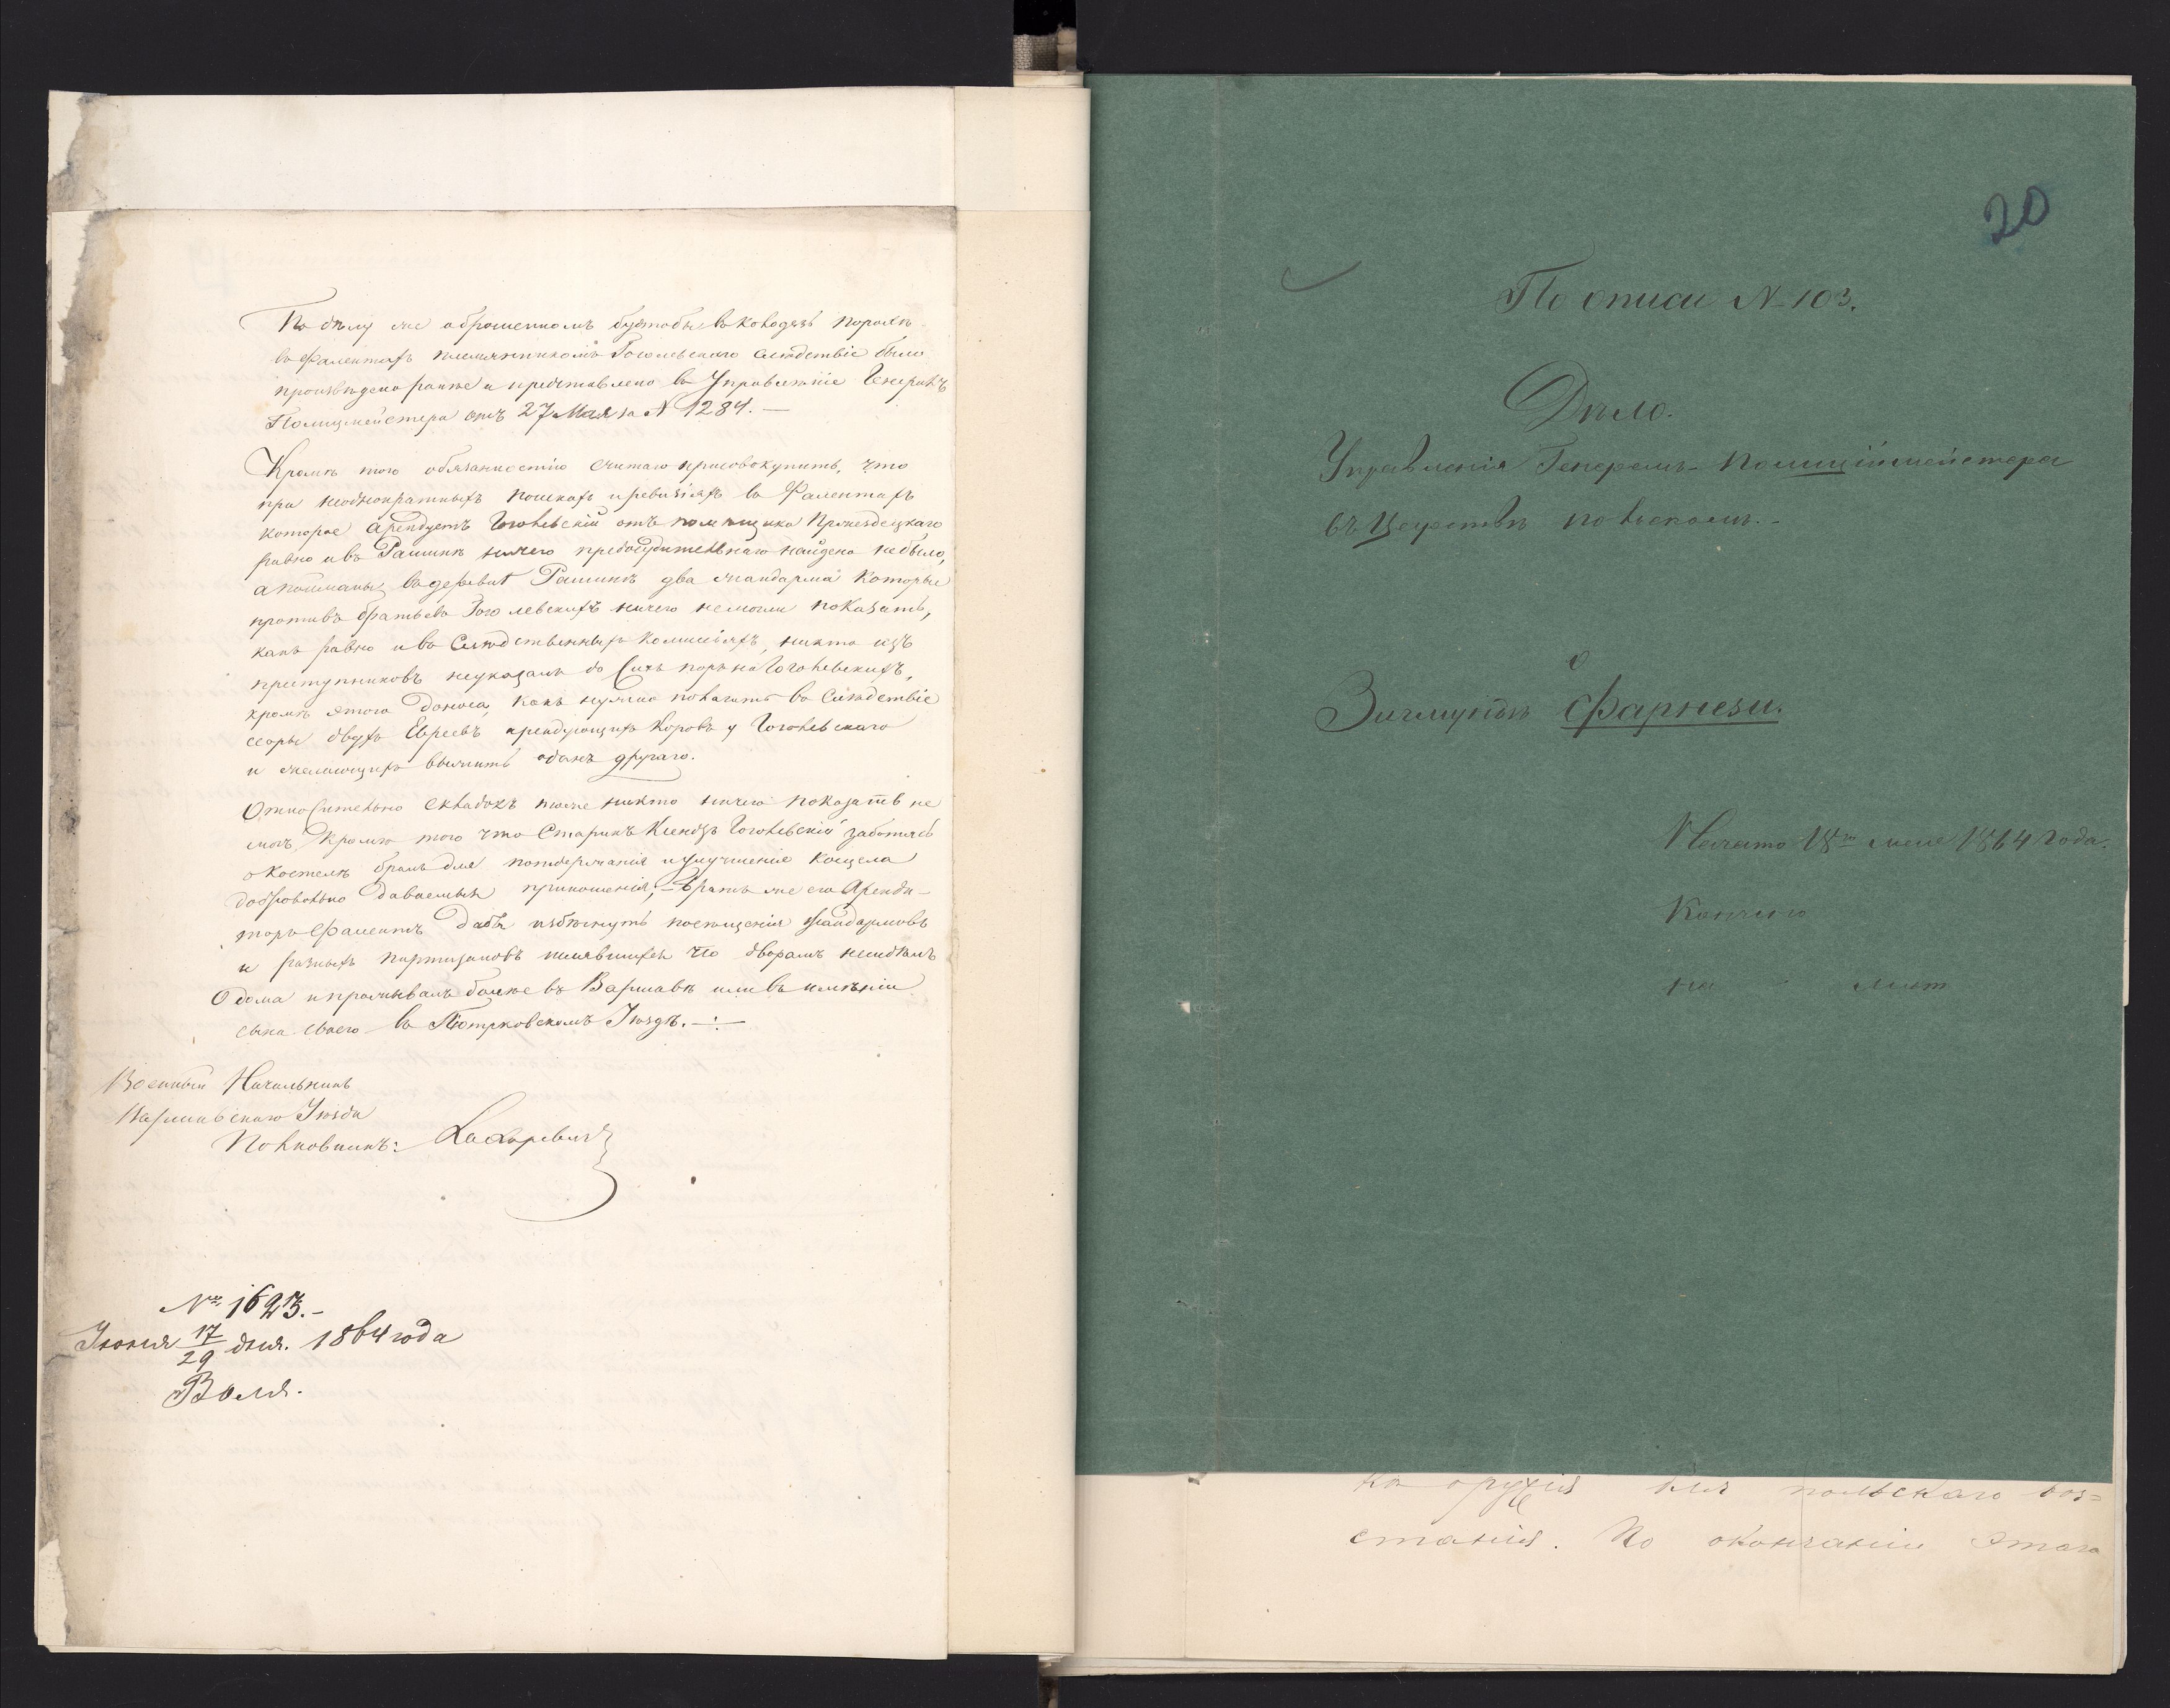 По дѣлу же оброшенномъ будтобы въ колодезь порохѣ
въ Фалентахъ племянникомъ Гоголевскаго слѣдствіе было
произведено ранѣе и представлено въ Управленіе Генералъ
Полицмейстера отъ 27 Мая за N 1284. —
Кромѣ того обязанностію считаю присовокупить, что
при неоднократныхъ поискахъ и ревизіяхъ въ Фалентахъ
которое арендуетъ Гоголевскій отъ помѣщика
равно и въ Рашинѣ ничего предосудительнаго найдено не было,
а пойманы въ деревнѣ Рашинѣ два жандарма которые
противъ братьевъ Гоголевскихъ ничего немогли показать,
какъ равно и въ Слѣдственныхъ Комисіяхъ, никто изъ
преступниковъ неуказалъ до сихъ поръ на Гоголевскихъ,
кромѣ этого доноса, какъ нужно полагать въ слѣдствіе
ссоры двухъ Евреевъ арендующихъ коровъ у Гоголевскаго
и желающихъ одинъ другаго.
Относительно складокъ тоже никто ничего показать не
могъ, кромѣ того что Старикъ Ксендзъ Гоголевскій заботясь
о костелѣ бралъ для поддержанія и улучшенія косцела
добровольно даваемыя приношенія, — братъ же его Аренда-
торъ Фалентъ дабы избѣгнуть посещенія жандармовъ
и разныхъ партизановъ по дворамъ
дома и проживалъ болѣе въ Варшавѣ или въ имѣніи
сына своего въ Піотрковскомъ Уѣздѣ. —:—
Военный Начальникъ
Варшавскаго Уѣзда
Полковникъ:
№ 1623.-
Іюня 17/29 дня. 1864 года
Воля.
20
По описи N 103.
Дѣло.
Управленія Генералъ-Полиціймейстера
въ Царствѣ Польскомъ.-
о
Зигмунтѣ Фарнези.
Начато 18го 1864 года.
Кончено
на лист
на оружія для польскаго воз=
станія. По окончаніи этого